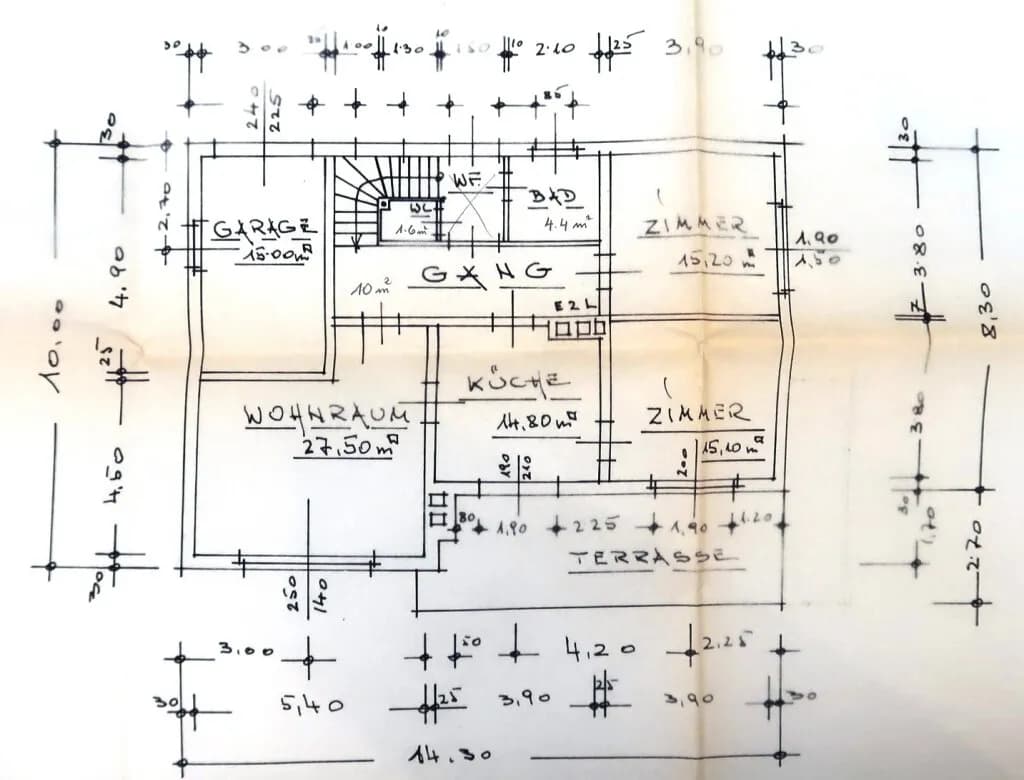 30 3.00 30 1.00 10 1.30 10 1.50 10 2.10 25 3,90 30
85
240
225
30
30
2.70
WF.
BAD
4.4 m²
WC
1.6 m²
GARAGE
15.00 m²
ZIMMER
15,20 m²
1,90
1,50
4.90
3.80
10 m²
GANG
EZL
7
10,00
8,30
25
KÜCHE
14,80 m²
WOHNRAUM
27,50 m²
ZIMMER
15,10 m²
3.80
4.50
190
210
200
30
1,70
80 1,90 225 1,90 1.20
TERRASSE
2.70
30
250
140
3,00 50 4,20 2,25
30 5,40 25 3,90 25 3,90 30
14.30